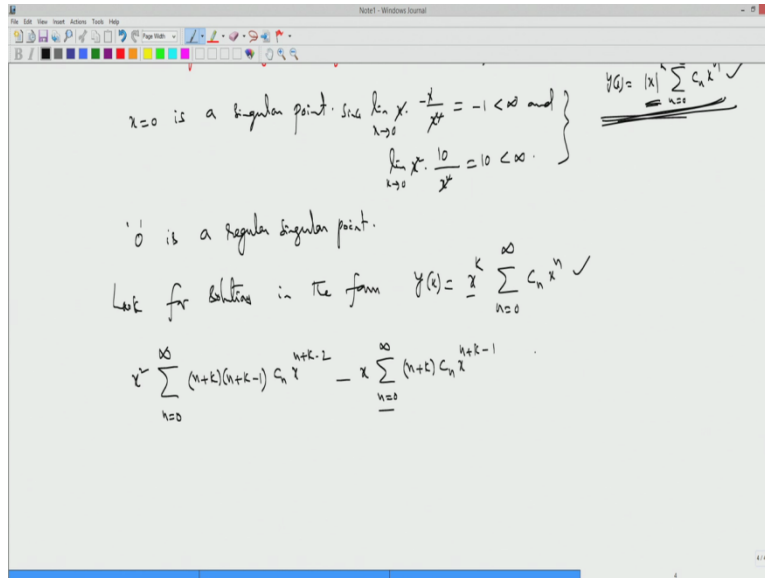 Note1 - Windows Journal
File Edit View Insert Actions Tools Help
Page Width
y(x) = |x|^k ∑_{n=0}^∞ c_n x^n ✓
x=0 is a singular point. Since lim_{x→0} x · -x/x² = -1 < ∞ and
lim_{x→0} x² · 10/x² = 10 < ∞.
'0' is a regular singular point.
Look for solutions in the form y(x) = x^k ∑_{n=0}^∞ c_n x^n ✓
x² ∑_{n=0}^∞ (n+k)(n+k-1) c_n x^{n+k-2} - x ∑_{n=0}^∞ (n+k) c_n x^{n+k-1}
4